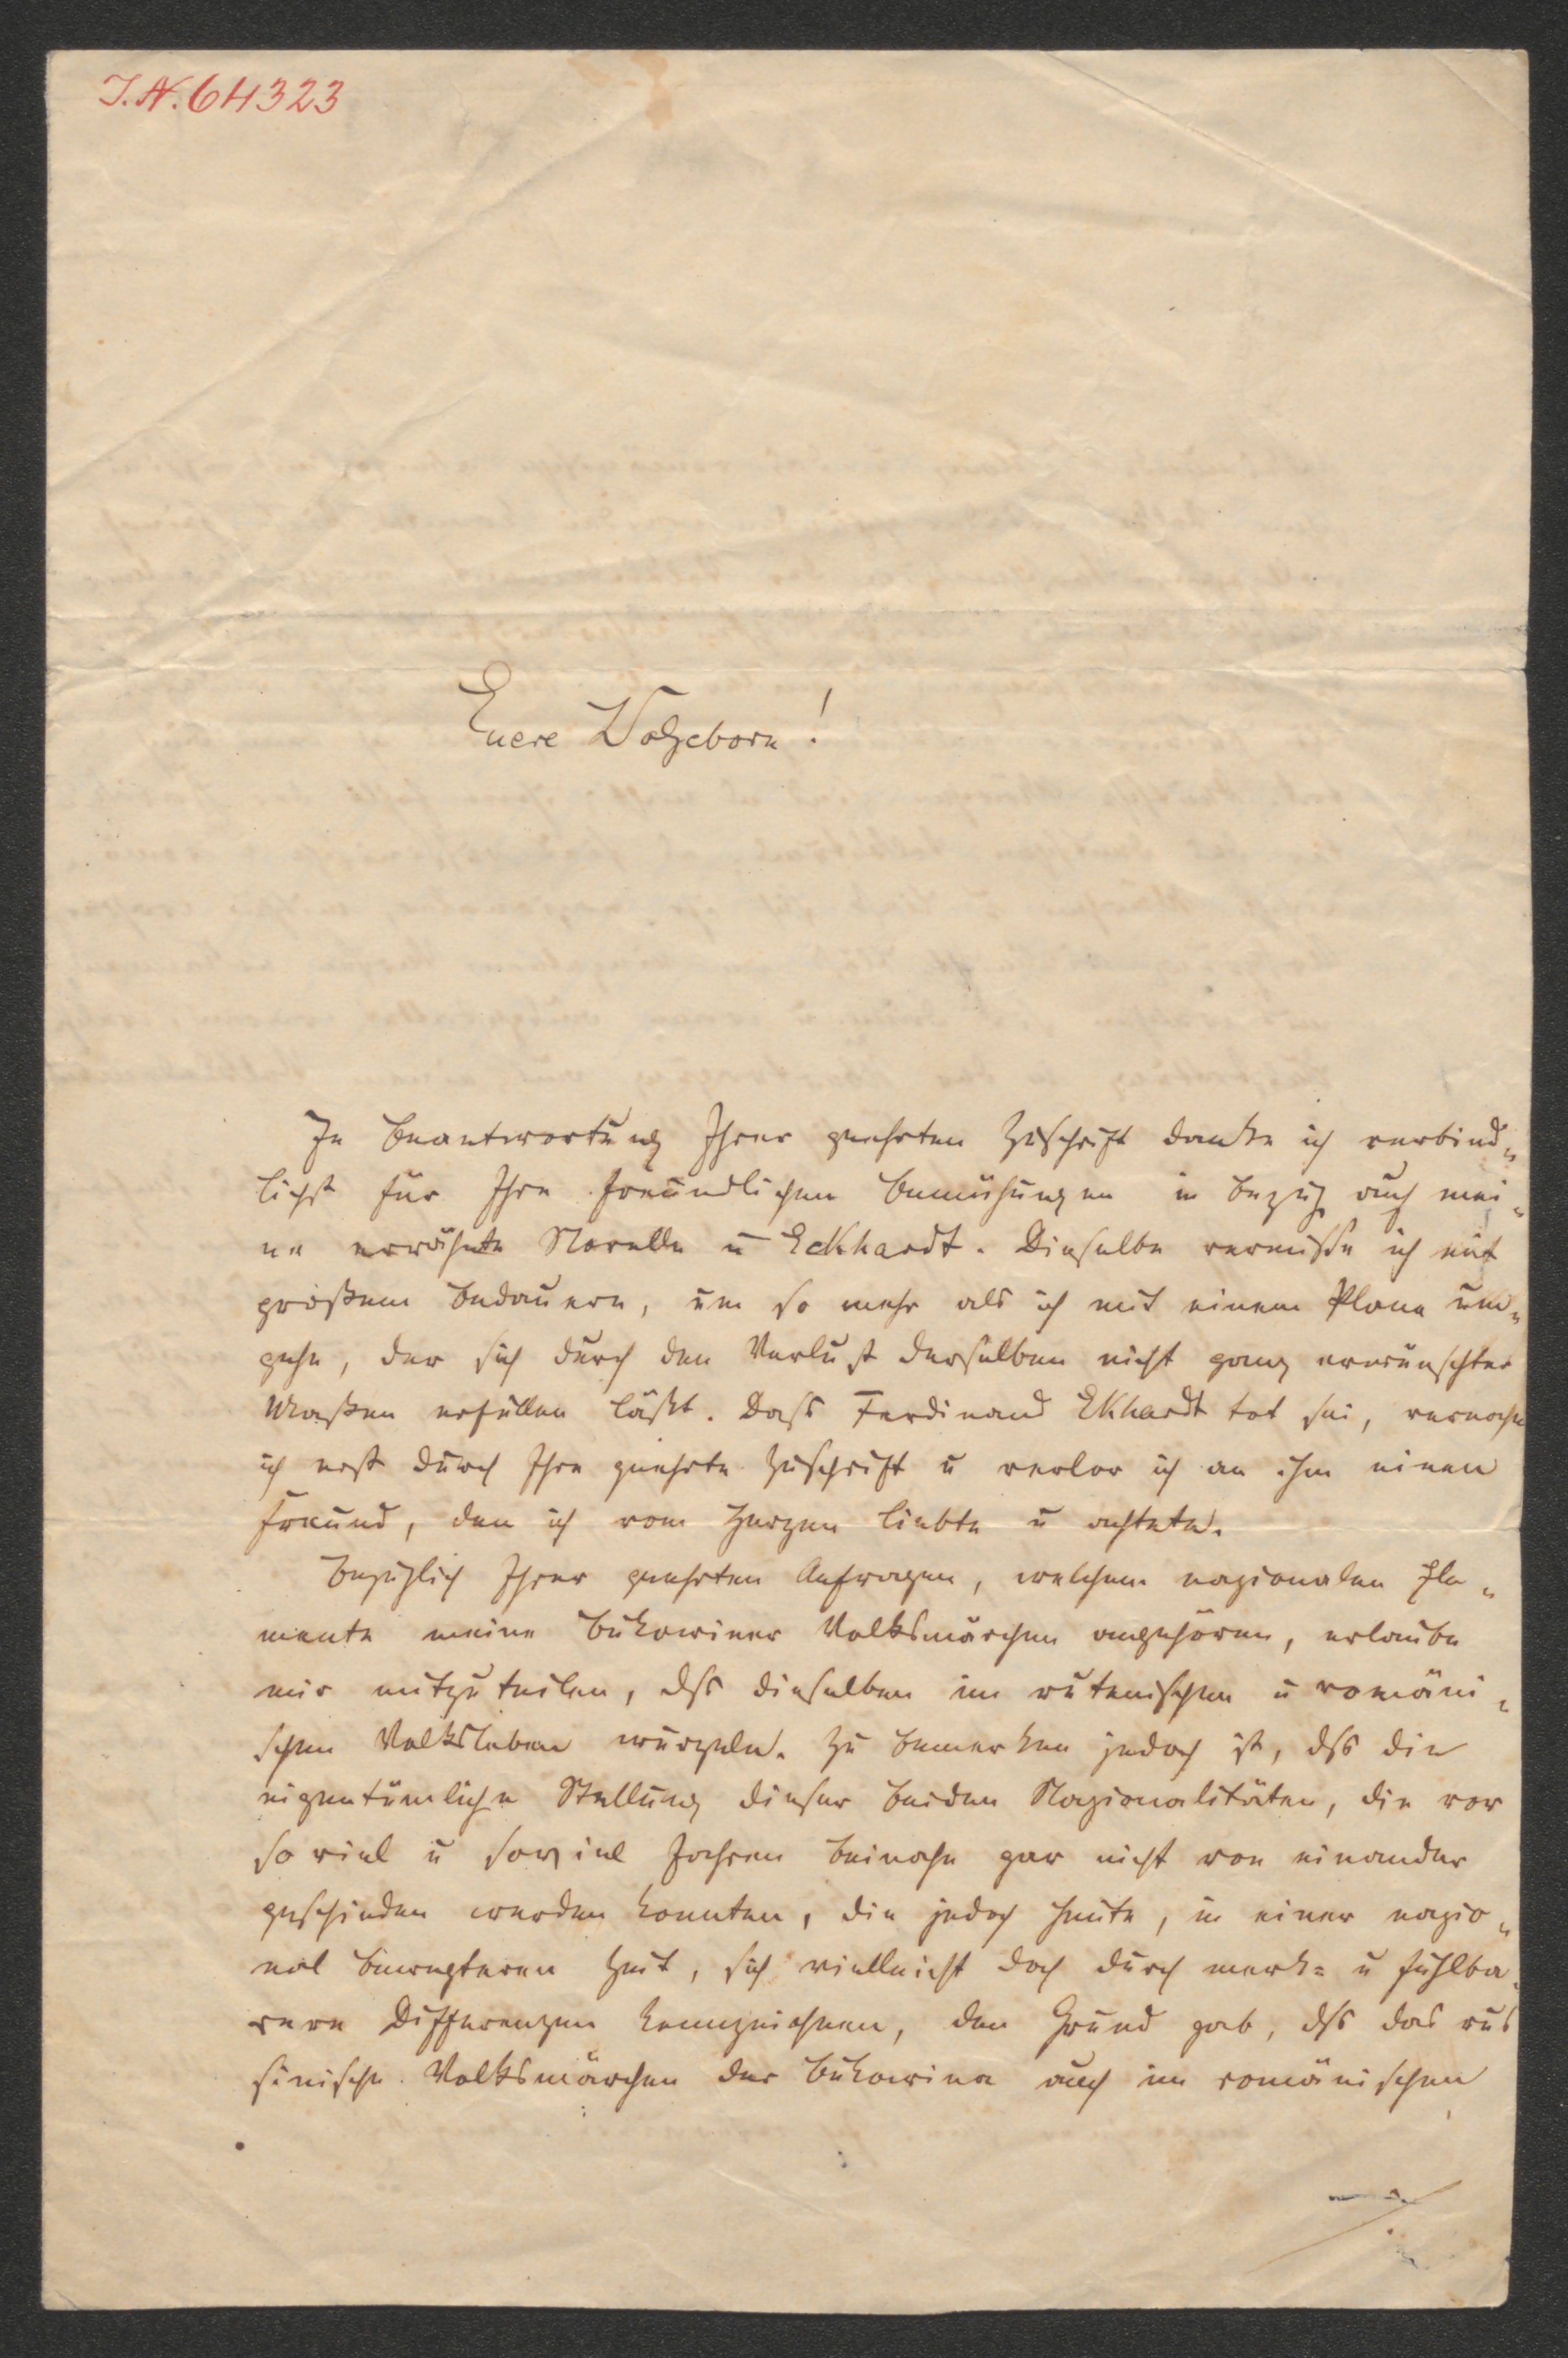 I.N. 64323
Euere Wolgeborn!
In Beantwortung Ihrer geehrten Zuschrift danke ich verbind„
lichst für Ihre freundlichen Bemühungen in bezug auf mei„
ne erwähnte Novelle u Eckhardt. Dieselbe vermisse ich mit
großem Bedauern, um so mehr als ich mit einem Plane um„
gehe, der sich durch den Verlust derselben nicht ganz erwünschter
Maßen erfüllen läßt. Dass Ferdinand Ekhardt tot sei, vernahm
ich erst durch Ihre geehrte Zuschrift u verlor ich an ihm einen
Freund, den ich vom Herzen liebte u achtete.
Bezüglich Ihrer geehrten Anfragen, welchem nazionalen Ele„
mente meine Bukowiner Volksmärchen angehören, erlaube
mir mitzuteilen, dss dieselben im rutenischen u romäni„
schen Volksleben wurzeln. Zu bemerken jedoch ist, dss die
eigentümliche Stellung dieser beiden Nazionalitäten, die vor
so viel u soviel Jahren beinahe gar nicht von einander
geschieden werden konnten, die jedoch heute, in einer nazio„
nal bewegteren Zeit, sich vielleicht doch durch merk= u fühlba„
rere Differenzen kennzeichnen, den Grund gab, dss das rus
sinische Volksmärchen der Bukowina auch im romänischen